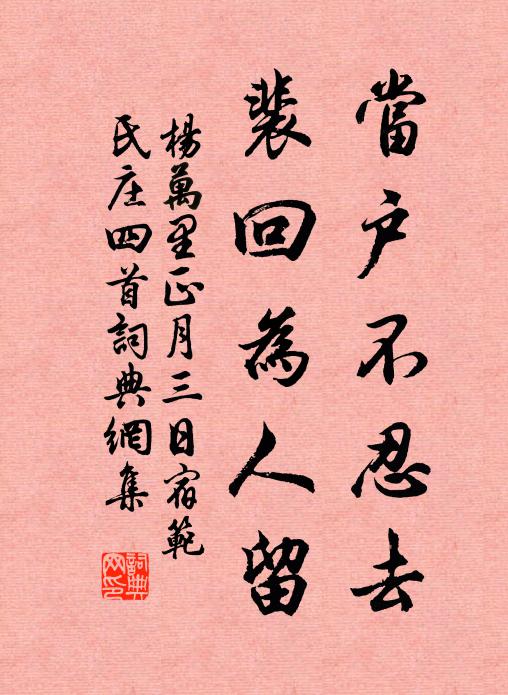 當戶不忍去
裴回為人留
楊萬里正月三日宿範
氏庄四首詞典網集
詞典
网印